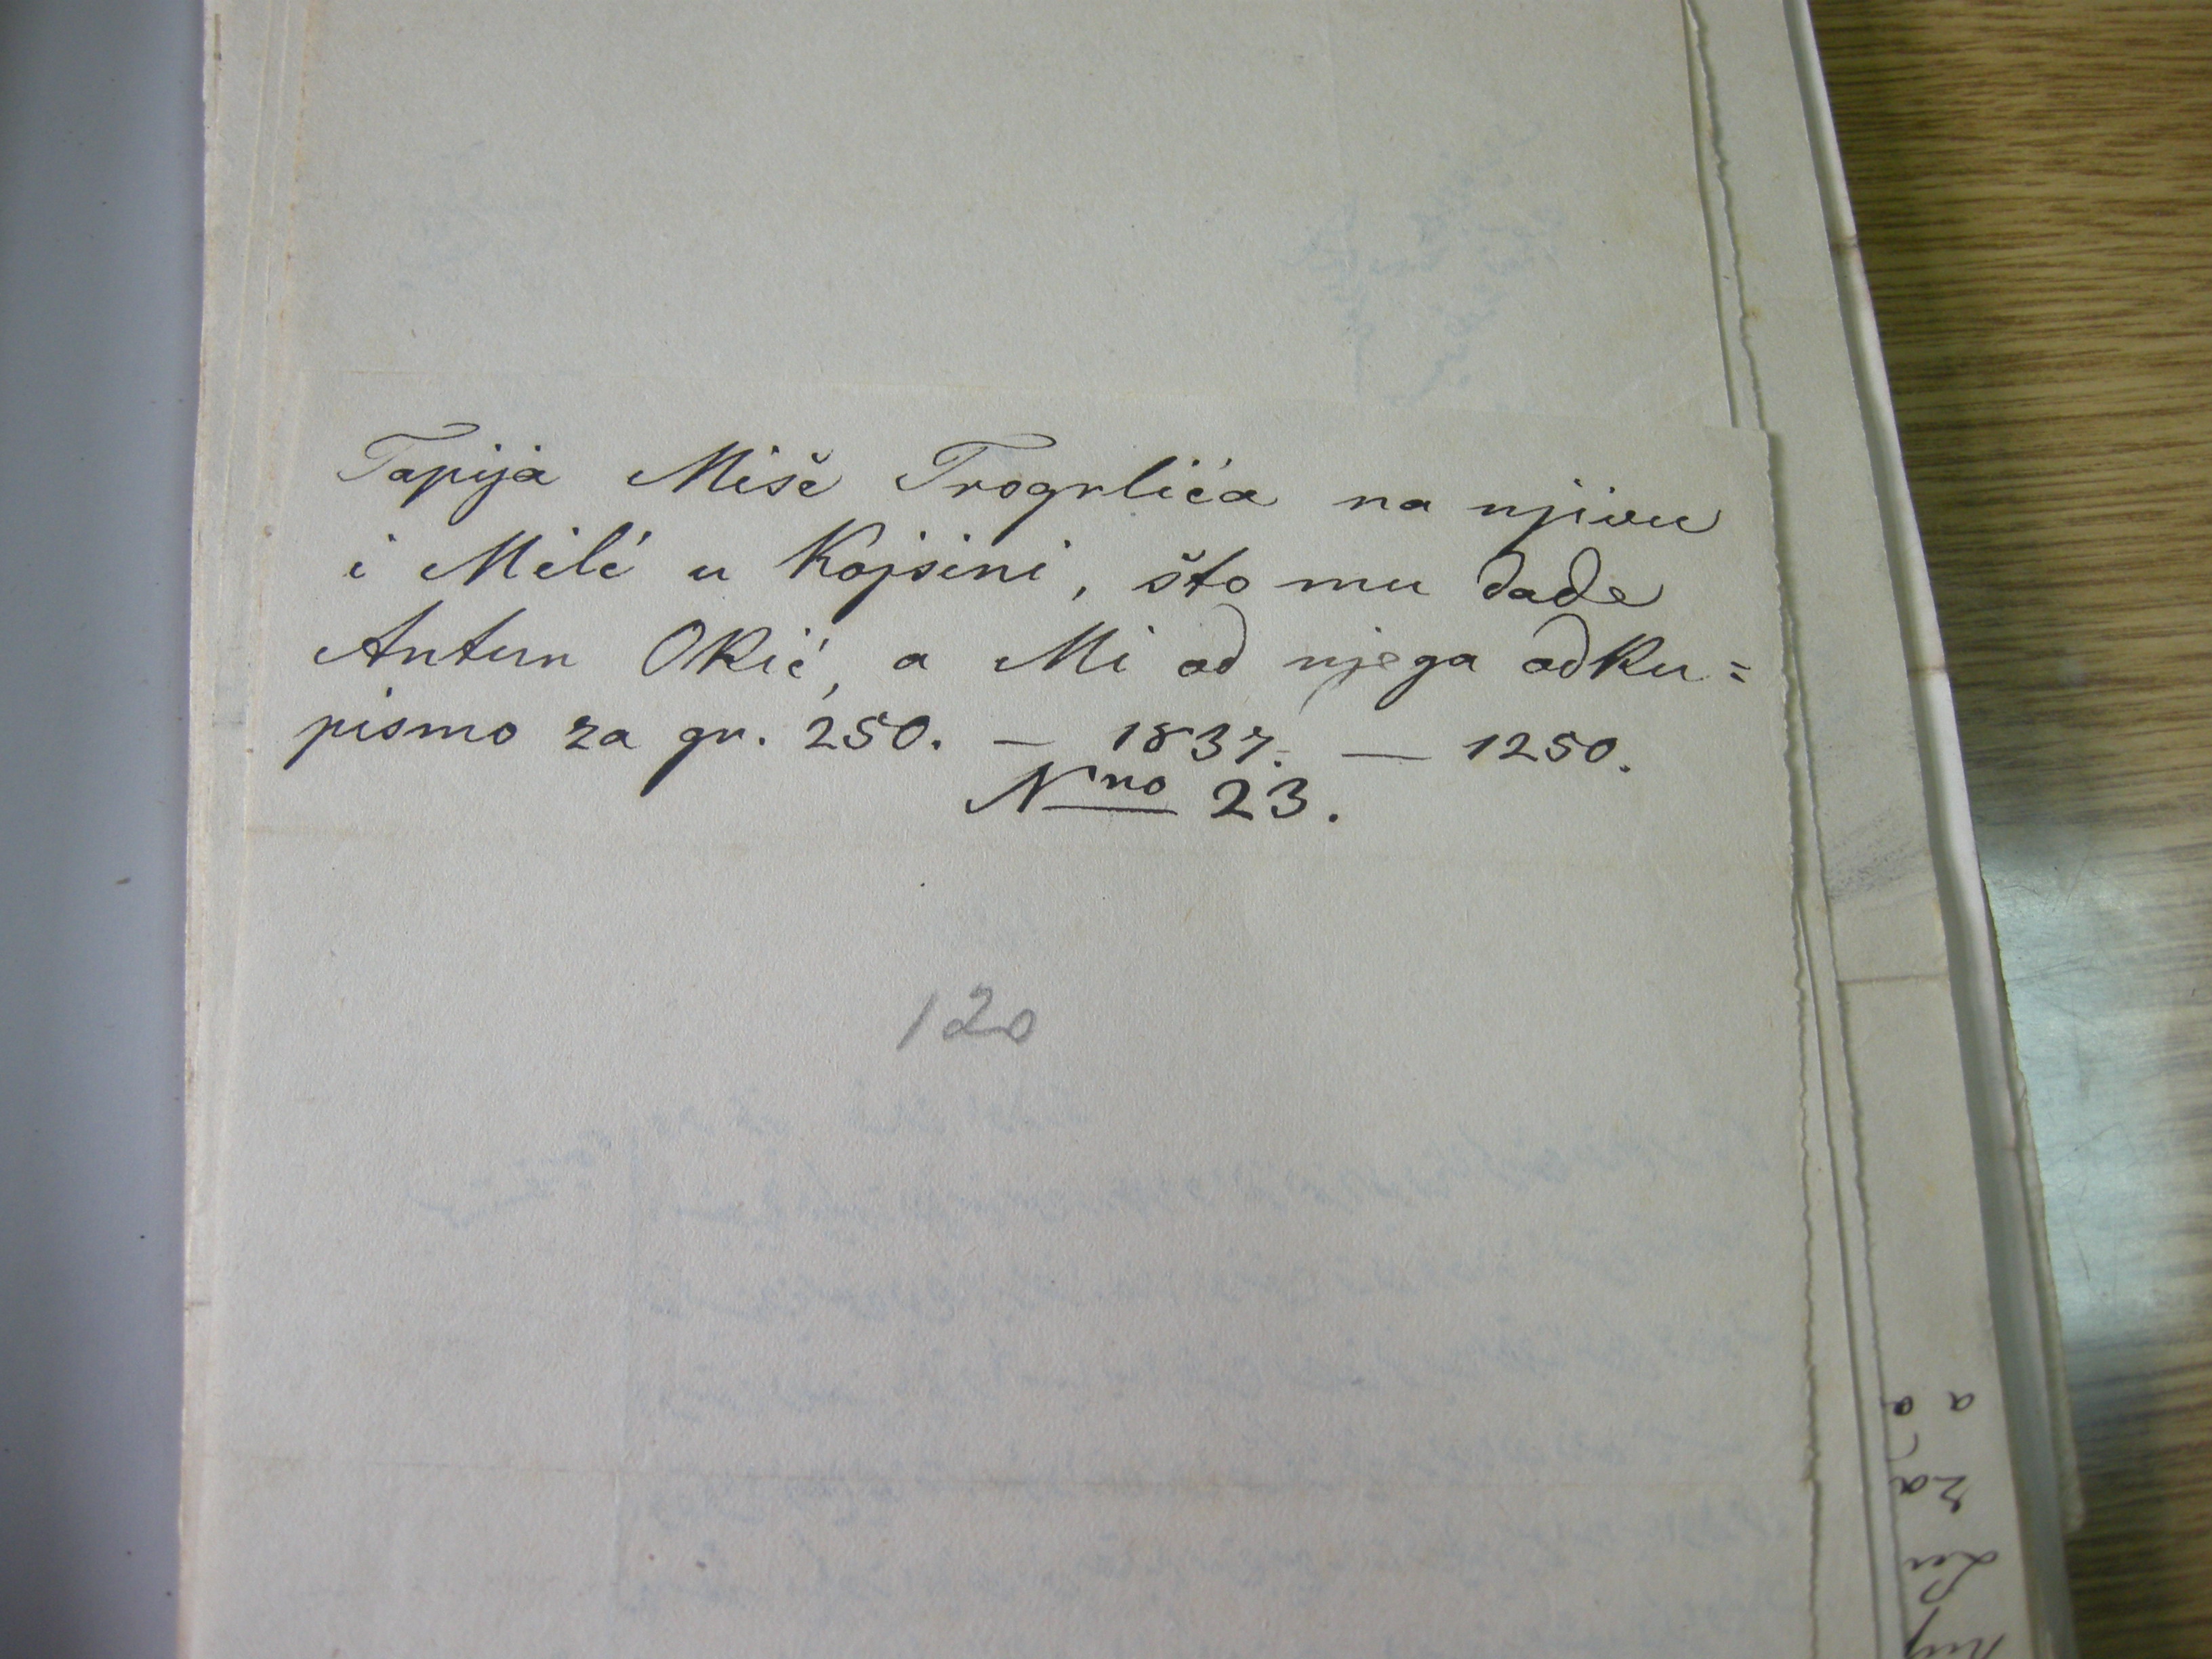 Tapija Miše Trogrlića na njivu
i Milé u Kojsini, što mu dade
Antun Okić, a Mi od njega odku=
pismo za gr. 250. — 1837. — 1250.
Nno 23.
120
a
a
za